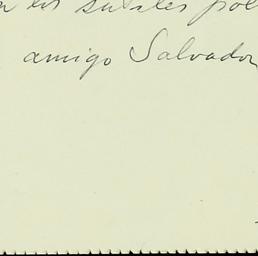 en los sutiles pol
amigo Salvador